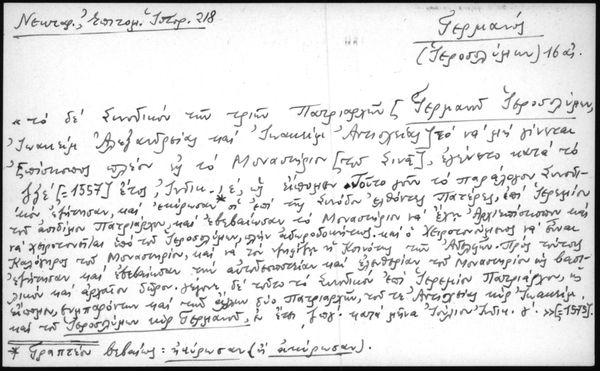 Νεκταρ., Ἐπιτομ. Ἱστορ. 218
Γερμανός
(Ἱεροσολύμων) 16 αἰ.
«τὸ δὲ Συνοδικὸν τῶν τριῶν Πατριαρχῶν [Γερμανοῦ Ἱεροσολύμων,
Ἰωακεὶμ Ἀλεξανδρείας καὶ Ἰωακεὶμ Ἀντιοχείας] τὸ νὰ μὴ γίνεται
Ἐπίσκοπος πλέον εἰς τὸ Μοναστήριον [τοῦ Σινᾶ], ἐγένετο κατὰ τὸ
ζξε΄ [=1557] ἔτος Ἰνδικ. ιε, ὡς εἴπομεν. Τοῦτο γοῦν τὸ παράλογον Συνοδι-
κόν, ἐζήτησαν, καὶ ἐκύρωσαν* οἱ ἐπὶ τῆς Συνόδου ἐλθόντες Πατέρες, ἐπὶ Ἱερεμίου
τοῦ ἀοιδίμου Πατριάρχου, καὶ ἐβεβαίωσαν τὸ Μοναστήριον νὰ ἔχῃ Ἀρχιεπίσκοπον καὶ
νὰ χειροτονῆται ὑπὸ τοῦ Ἱεροσολύμων, πλὴν ἀδωροδοκήτως. καὶ ὁ Χειροτονούμενος νὰ εἶναι
Καλόγηρος τοῦ Μοναστηρίου, καὶ νὰ τὸν ψηφίζῃ ἡ Κοινότης τῶν Ἀδελφῶν. Πρὸς τούτοις
ἐζήτησαν καὶ ἐβεβαίωσαν τὴν αὐτοδεσποτείαν καὶ ἐλευθερίαν τοῦ Μοναστηρίου ὡς βασι-
λικὸν καὶ ἀρχαῖον δῶρον. ἐγένετο δὲ τοῦτο τὸ Συνοδικὸν ἐπὶ Ἱερεμίου Πατριάρχου, ὡς
εἴπομεν, συμπαρόντων καὶ τῶν ἄλλων δύο Πατριαρχῶν, τοῦ τε Ἀντιοχείας κὺρ Ἰωακεὶμ,
καὶ τοῦ Ἱεροσολύμων κὺρ Γερμανοῦ, ἐν ἔτει ͵ζπγ΄ κατὰ μῆνα Ἰούλιον Ἰνδικ. γ΄.» [=1575].
* Γραπτέον βεβαίως: ἠκύρωσαν (ἢ ἀκύρωσαν).